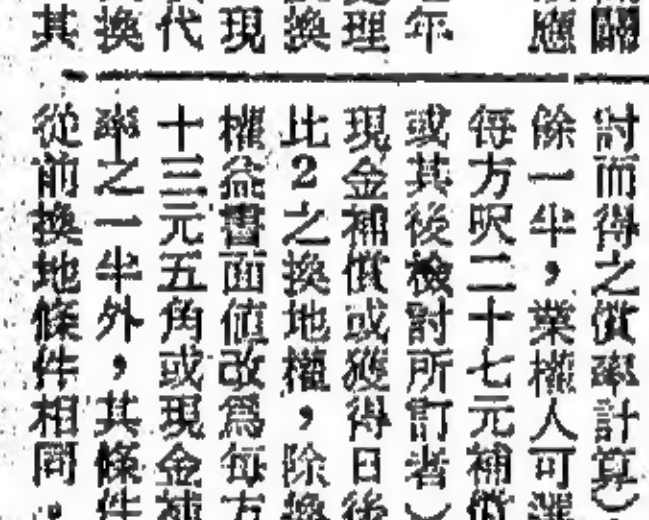 關
應
年
理
換
現
代
換
其
討而得之償率計算︶
餘一半，業權人可選
每方呎二十七元補償
或其後檢討所訂者︶
現金補償或獲得日後
此2之換地權，除換
權益書面値改爲每方
十三元五角或現金補
率之一半外，其條件
從前換地條件相同。